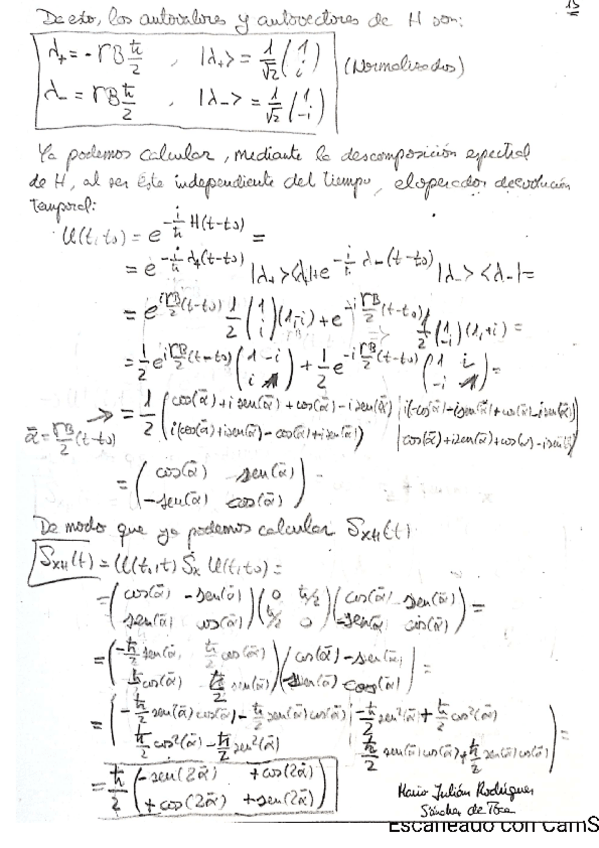 15
De esto, los autovalores y autovectores de H son:
λ₊ = -γB ħ/2 , |λ₊> = 1/√2 (1 i) (Normalizados)
λ₋ = γB ħ/2 , |λ₋> = 1/√2 (1 -i)
Ya podemos calcular, mediante la descomposición espectral
de H, al ser éste independiente del tiempo, el operador de evolución
temporal:
U(t,t₀) = e^{-i/ħ H(t-t₀)} =
= e^{-i/ħ λ₊(t-t₀)} |λ₊><λ₊| + e^{-i/ħ λ₋(t-t₀)} |λ₋><λ₋| =
= e^{i γB/2 (t-t₀)} 1/2 (1 i)(1,-i) + e^{-i γB/2 (t-t₀)} 1/2 (1 -i)(1,+i) =
= 1/2 e^{i γB/2 (t-t₀)} (1 -i; i 1) + 1/2 e^{-i γB/2 (t-t₀)} (1 i; -i 1) =
ᾱ = γB/2 (t-t₀) => = 1/2 (cos(ᾱ)+i sen(ᾱ)+cos(ᾱ)-i sen(ᾱ) | i(-cos(ᾱ)-i sen(ᾱ)+cos(ᾱ)-i sen(ᾱ))
i(cos(ᾱ)+i sen(ᾱ)-cos(ᾱ)+i sen(ᾱ)) | cos(ᾱ)+i sen(ᾱ)+cos(ᾱ)-i sen(ᾱ))
= (cos(ᾱ) sen(ᾱ)
-sen(ᾱ) cos(ᾱ))
De modo que ya podemos calcular S_{XH}(t)
S_{XH}(t) = U(t₀,t) S_x U(t,t₀) =
= (cos(ᾱ) -sen(ᾱ) (0 ħ/2 (cos(ᾱ) sen(ᾱ)
sen(ᾱ) cos(ᾱ)) ħ/2 0) -sen(ᾱ) cos(ᾱ)) =
= (-ħ/2 sen(ᾱ) ħ/2 cos(ᾱ) (cos(ᾱ) -sen(ᾱ)
ħ/2 cos(ᾱ) ħ/2 sen(ᾱ)) -sen(ᾱ) cos(ᾱ)) =
= (-ħ/2 sen(ᾱ)cos(ᾱ) - ħ/2 sen(ᾱ)cos(ᾱ) | -ħ/2 sen²(ᾱ) + ħ/2 cos²(ᾱ)
ħ/2 cos²(ᾱ) - ħ/2 sen²(ᾱ) | ħ/2 sen(ᾱ)cos(ᾱ) + ħ/2 sen(ᾱ)cos(ᾱ)) =
= ħ/2 (-sen(2ᾱ) +cos(2ᾱ)
+cos(2ᾱ) +sen(2ᾱ))
Mario Julián Rodríguez
Sánchez de Toca
Escaneado con CamS